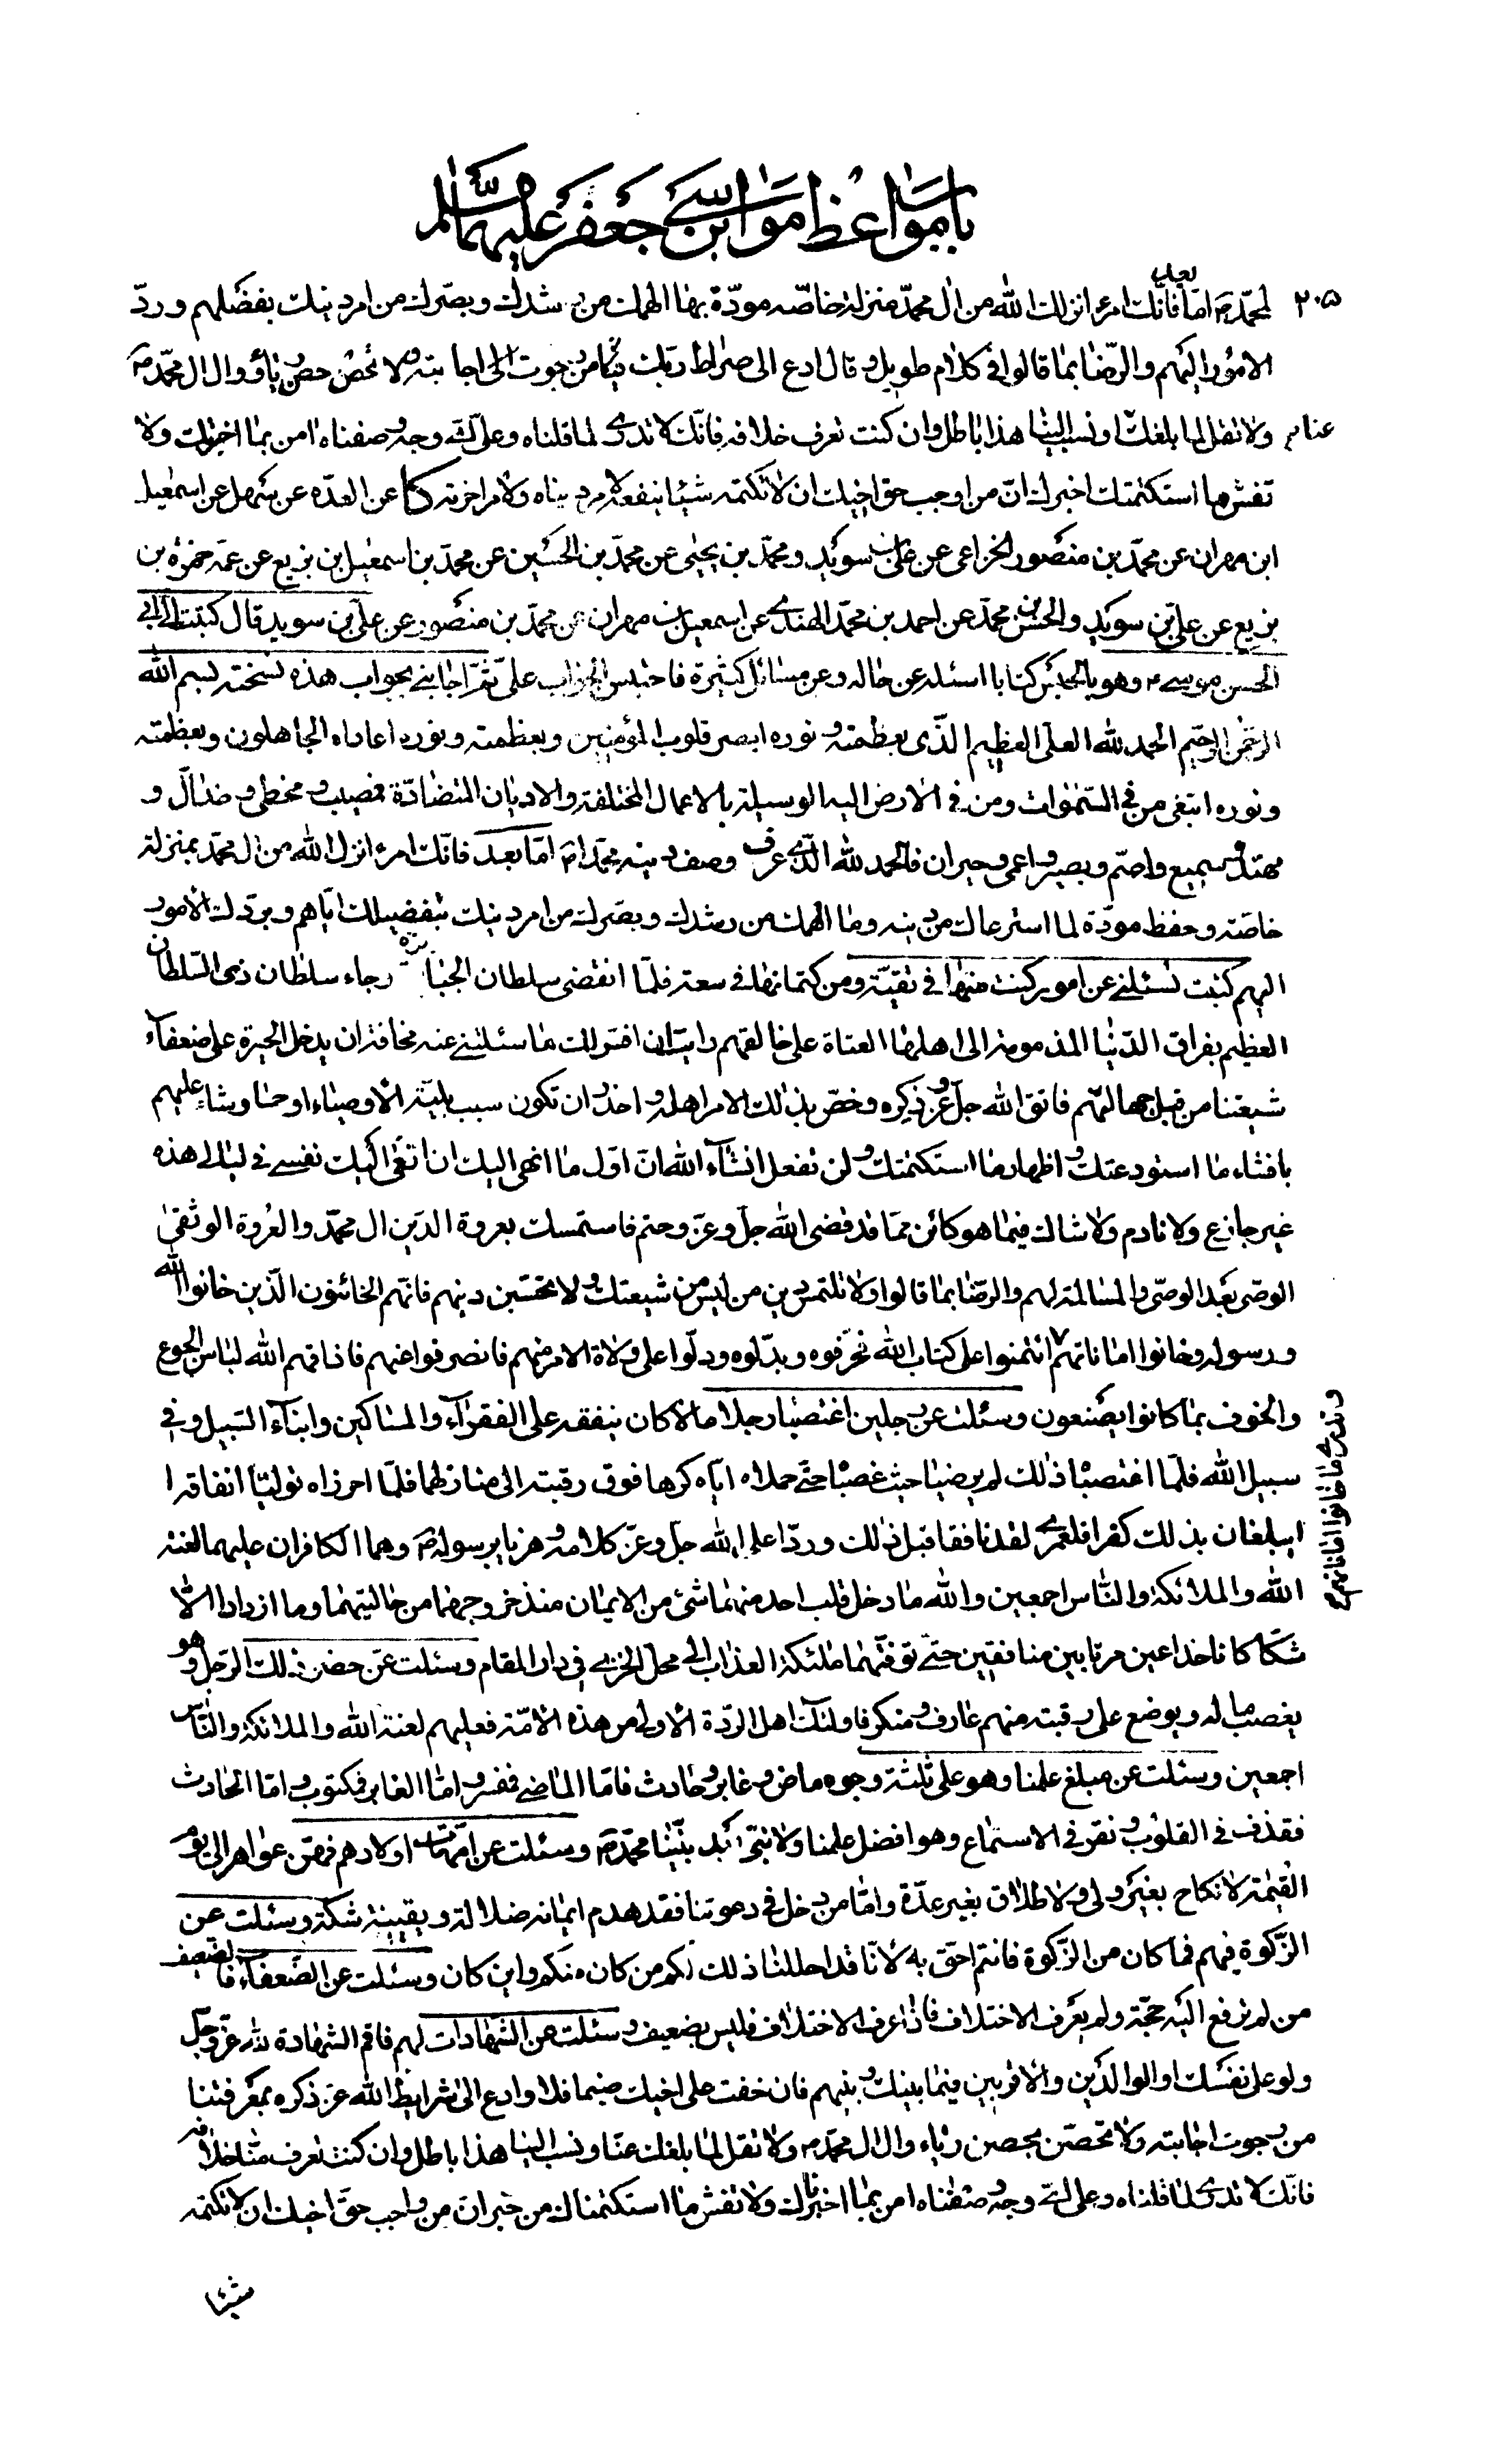 باب مواعظ موسى ابن جعفر عليهما السلام
بعد
٢٠٥ لمحمّد ص اما فانّك امرء انزلك الله من ال محمّد منزلة خاصّه مودّة بما الهمك من رشدك وبصّرك من امر دينك بفضلهم وردّ
الامور اليهم والرّضا بما قالوا فى كلام طويل وقال ادع الى صراط ربك فينا من رجوت اجابته ولا تحصّن حصن رياء ووال ال محمّد ص
عنا م ولا تقل لما بلغك او نسب الينا هذا باطل وان كنت تعرف خلافه فانّك لا تدرى لما قلناه وعلى اىّ وجه وصفناه امن بما اخبرتك ولا
تفش ما استكتمتك اخبرك انّ من اوجب حق اخيك ان لا تكتمه شيئا ينفعه لا من دنياه ولا من اخرته كا عن العدّه عن سهل عن اسمعيل
ابن مهران عن محمّد بن منصور الخزاعى عن على بن سويد ومحمّد بن يحيى عن محمّد بن الحسين عن محمّد بن اسمعيل بن بزيع عن عمّه حمزة بن
بزيع عن على بن سويد والحسن بن محمّد عن احمد بن محمّد النهدى عن اسمعيل بن مهران عن محمّد بن منصور عن على بن سويد قال كتبت الى ابى
الحسن موسى ع وهو بالحبس كتابا اسئله عن حاله وعن مسائل كثيرة فاحتبس الجواب علىّ ثمّ اجابنى بجواب هذه نسخته بسم الله
الرحمن الرحيم الحمد لله العلى العظيم الذى بعظمته ونوره ابصر قلوب المؤمنين وبعظمته ونوره عاداه الجاهلون وبعظمته
ونوره ابتغى من فى السّموات ومن فى الارض اليه الوسيلة بالاعمال المختلفة والاديان المتضادّة فمصيب ومخطئ وضالّ و
مهتد وسميع واصمّ وبصير واعمى وحيران فالحمد لله الّذى عرف ووصف دينه محمّد ص امّا بعد فانّك امرء انزل الله من ال محمّد بمنزلة
خاصّة وحفظ مودّة لما استرعاك من دينه وما الهمك من رشدك وبصّرك من امر دينك بتفضيلك ايّاهم وبردّك الامور
اليهم كتبت تسئلنى عن امور كنت منها فى تقيّة ومن كتمانها فى سعة فلمّا انقضى سلطان الجبابرة وجاء سلطان ذى السّلطان
العظيم بفراق الدّنيا المذمومة الى اهلها العتاة على خالقهم رايت ان افسّر لك ما سئلتنى عنه مخافة ان يدخل الحيرة على ضعفاء
شيعتنا من قبل جهالتهم فاتق الله جلّ وعزّ ذكره وخصّ بذلك الامر اهله واحذر ان تكون سبب بليّة الاوصياء او حارشا عليهم
بافشاء ما استودعتك واظهار ما استكتمتك ولن تفعل انشاء الله انّ اوّل ما انهى اليك ان انعى اليك نفسى فى ليالى هذه
غير جازع ولا نادم ولا شاك فيما هو كائن ممّا قد قضى الله جلّ وعزّ وحتم فاستمسك بعروة الدّين ال محمّد والعروة الوثقى
الوصى بعد الوصى والمسالمة لهم والرضا بما قالوا ولا تلتمس دين من ليس من شيعتك ولا تحبّن دينهم فانّهم الخائنون الّذين خانوا الله
ورسوله وخانوا اماناتهم ائتمنوا على كتاب الله فحرّفوه وبدّلوه ودلّوا على ولاة الامر منهم فانصرفوا عنهم فاذاقهم الله لباس الجوع
وتدرى ما خانوا اماناتهم
والخوف بما كانوا يصنعون وسئلت عن رجلين اغتصبا رجلا مالا كان ينفقه على الفقراء والمساكين وابناء السّبيل وفى
سبيل الله فلمّا اغتصباه ذلك لم يرضيا حيث غصباه حتّى حملاه ايّاه كرها فوق رقبته الى منازلهما فلمّا احرزاه تولّيا انفاقه ا
ايبلغان بذلك كفرا فلعمرى لقد نافقا قبل ذلك وردّا على الله جلّ وعزّ كلامه وهزئا برسوله ص وهما الكافران عليهما لعنة
الله والملائكة والنّاس اجمعين والله ما دخل قلب احد منهما شئ من الايمان منذ خروجهما من حالتيهما وما ازدادا الّا
شكّا كانا خداعين مرتابين منافقين حتّى توفّتهما ملئكة العذاب الى محل الخزى فى دار المقام وسئلت عمّن حضر ذلك الرّجل وهو
يغصب ماله ويوضع على رقبته منهم عارف ومنكر فاولئك اهل الردّة الاولى من هذه الامّة فعليهم لعنة الله والملائكة والنّاس
اجمعين وسئلت عن مبلغ علمنا وهو على ثلثة وجوه ماض وغابر وحادث فامّا الماضى فمفسّر وامّا الغابر فمكتوب وامّا الحادث
فقذف فى القلوب ونقر فى الاسماع وهو افضل علمنا ولا نبىّ بعد نبيّنا محمّد ص وسئلت عن امّهات اولادهم فهنّ عواهر الى يوم
القيمة نكاح بغير ولى وطلاق بغير عدّة وامّا من دخل فى دعوتنا فقد هدم ايمانه ضلالته ويقينه شكّه وسئلت عن
الزّكوة فيهم فما كان من الزّكوة فانتم احقّ به لانّا قد احللنا ذلك لكم من كان منكم واين كان وسئلت عن الضّعفاء فالضعيف
من لم ترفع اليه حجّة ولم يعرف الاختلاف فاذا عرف الاختلاف فليس بضعيف وسئلت عن الشّهادات لهم فاقم الشّهادة لله عزّ وجلّ
ولو على نفسك او الوالدين والاقربين فيما بينك وبينهم فان خفت على اخيك ضيما فلا وادع الى شرايط الله عزّ ذكره بمعرفتنا
من رجوت اجابته ولا تحصّن بحصن رياء ووال ال محمّد ص ولا تقل لما بلغك عنّا ونسب الينا هذا باطل وان كنت تعرف منّا خلافه
فانّك لا تدرى لما قلناه وعلى اىّ وجه وصفناه امن بما اخبرك ولا تفش ما استكتمناك من خبر انّ من واجب حقّ اخيك ان لا تكتمه
شيئا